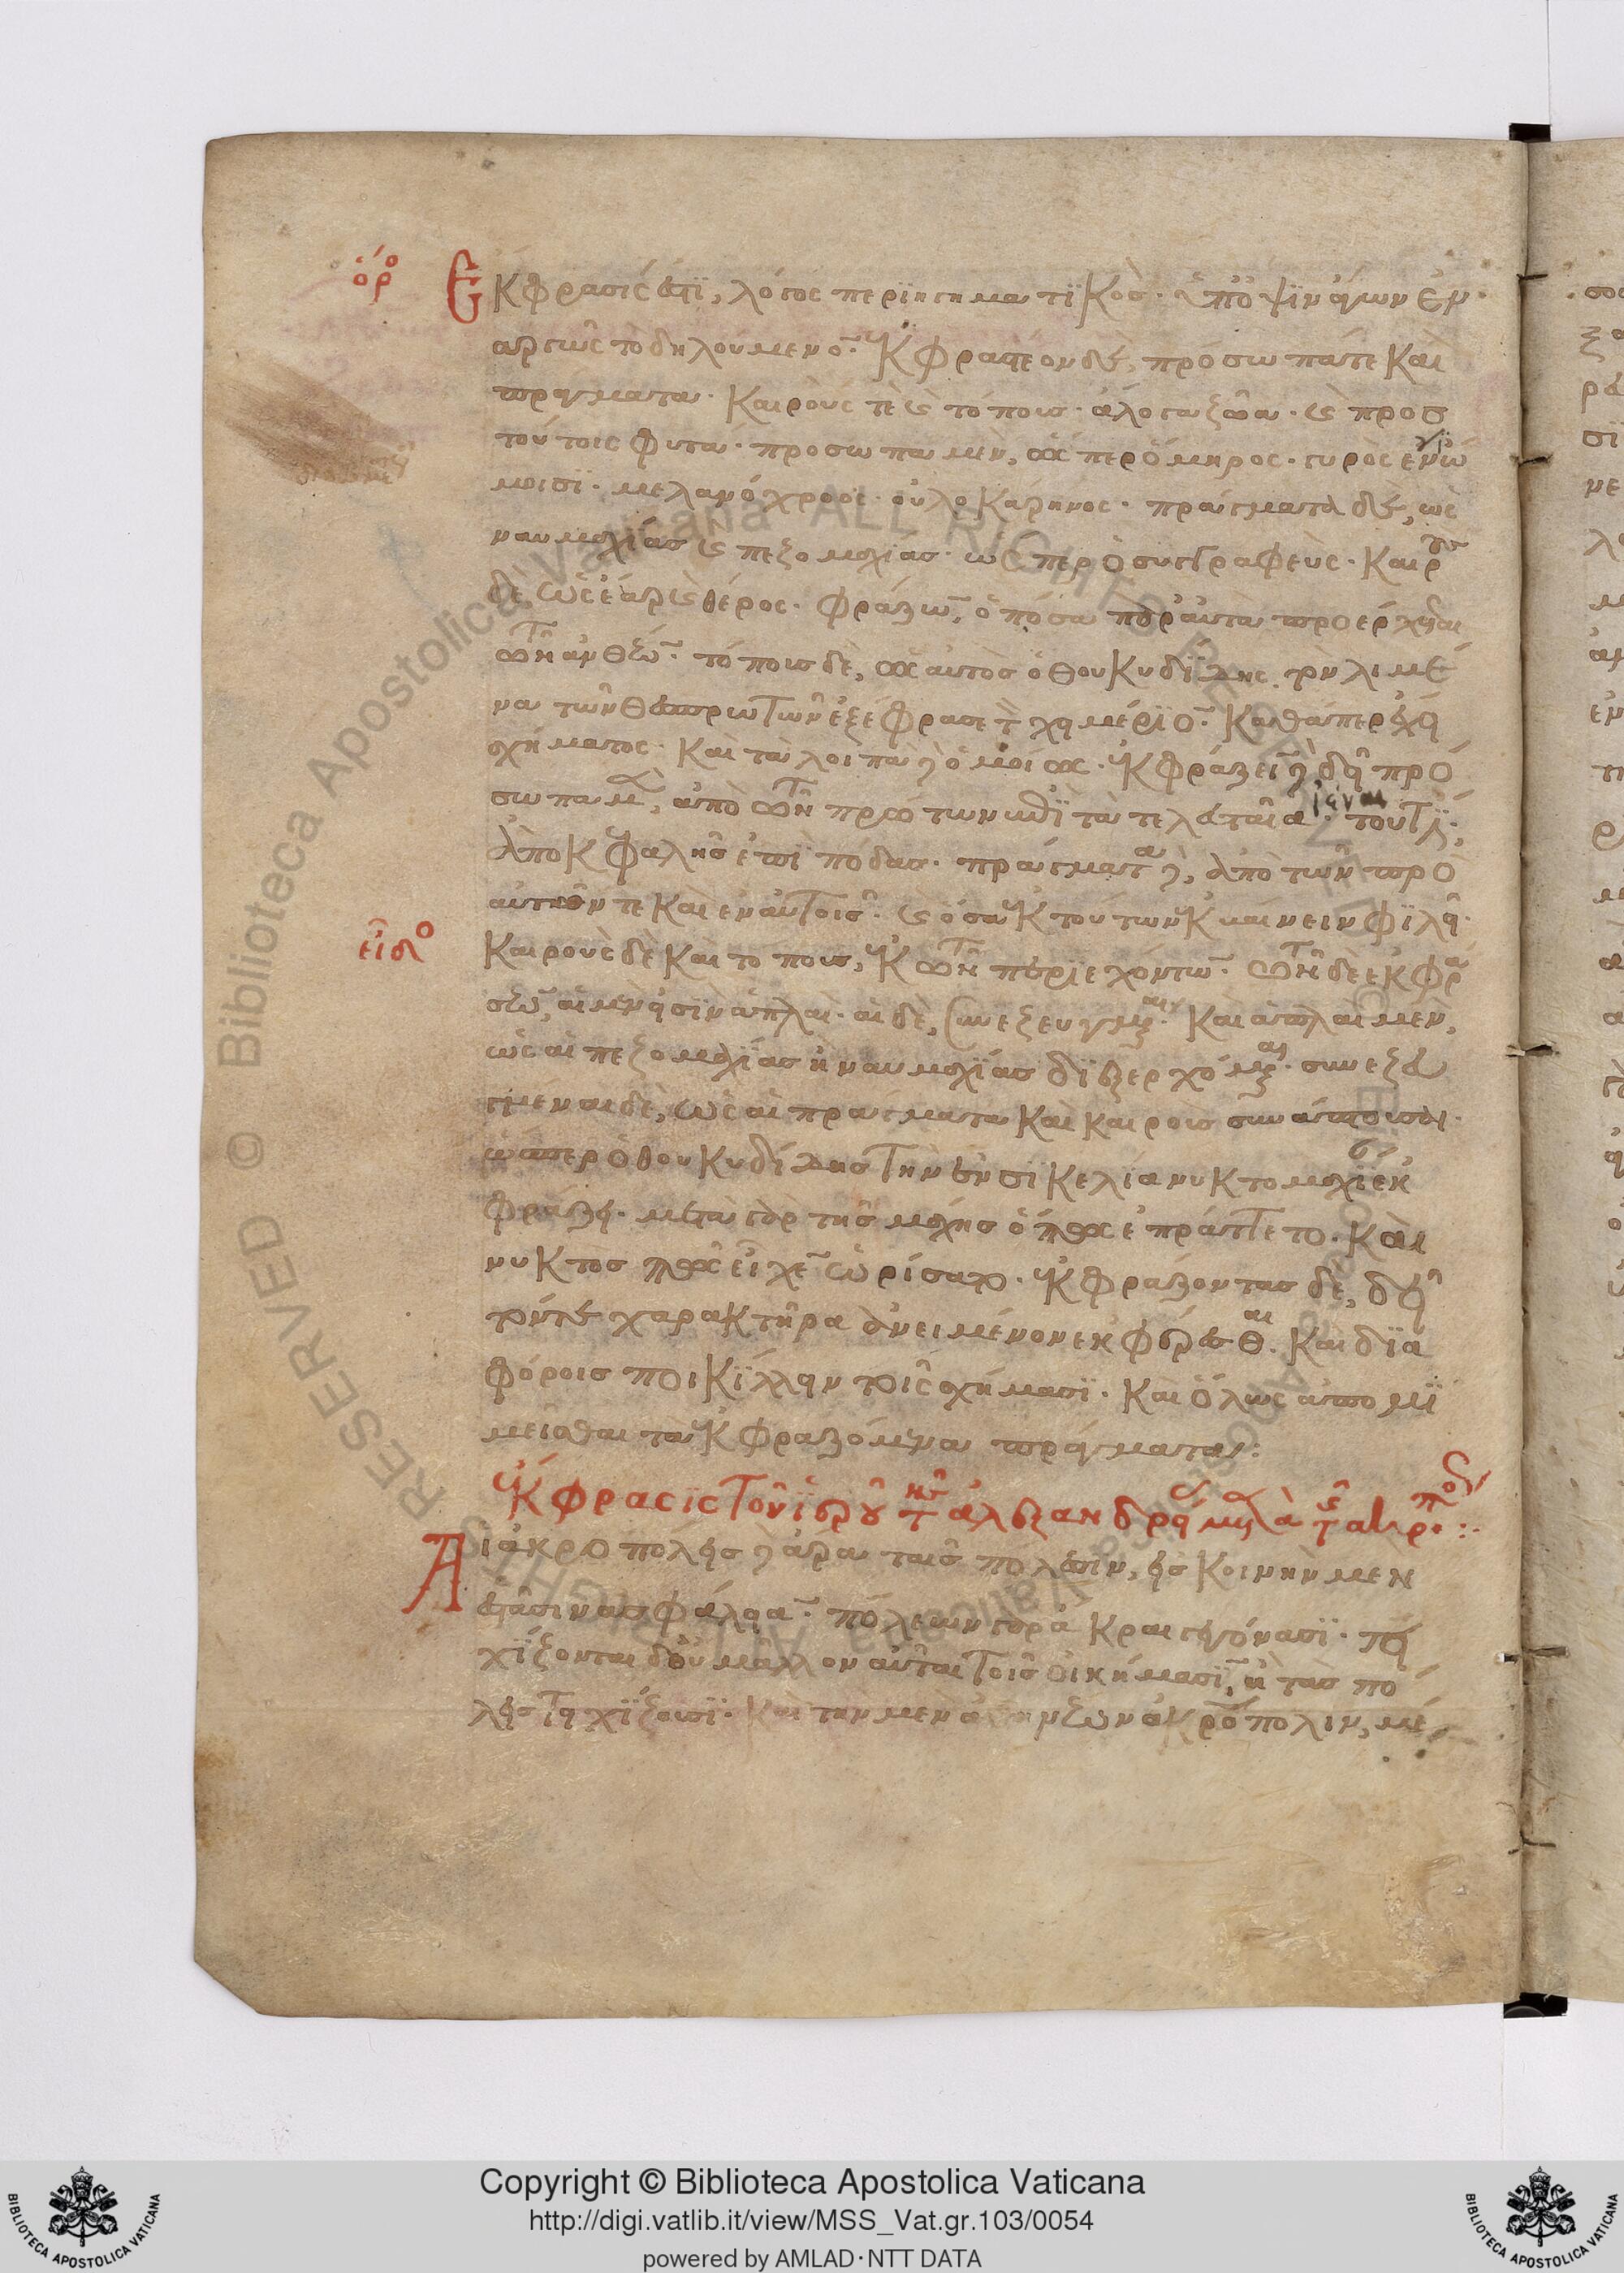 ὅρο
Ἔκφρασίς ἐστι, λόγος περιηγηματικός· ὑπ' ὄψιν ἄγων ἐν
αργῶς τὸ δηλούμενον. ἐκφραστέον δὲ, πρόσωπά τε καὶ
πράγματα· καιρούς τε καὶ τόπους· ἄλογα ζῶα· καὶ πρὸς
τούτοις φυτά· πρόσωπα μὲν, ὥσπερ ὅμηρος· γυρὸς ἐν ὤ
μοισι· μελανόχροος· οὐλοκάρηνος· πράγματα δὲ, ὡς
ναυμαχίας καὶ πεζομαχίας· ὥσπερ ὁ συγγραφεύς· καιρους
δὲ, ὡς ἔαρ καὶ θέρος· φράζων, ὁπόσα παρ' αὐτὰ προέρχεται
τῶν ἀνθέων. τόπους δὲ, ὡς αὐτὸς ὁ θουκυδίδης τὸν λιμέ
να τῶν θεσπρωτῶν ἐξέφρασε τὸ χειμέριον. καθάπερ ἔχει
σχήματος· καὶ τὰ λοιπὰ δὲ ὁμοίως· ἐκφράζειν δὲ δεῖ πρό
σωπα μὲν, ἀπὸ τῶν πρώτων ἐπὶ τὰ τελευταῖα ἰέναι· τουτέστιν
ἀπὸ κεφαλῆς ἐπὶ πόδας· πράγματα δὲ, ἀπὸ τῶν πρὸ
αὐτῶν τε καὶ ἐν αὐτοῖς· καὶ ὅσα ἐκ τούτων ἐκβαίνειν φιλεῖ·
εἶδο
καιροὺς δὲ καὶ τόπους, ἐκ τῶν περιεχόντων. τῶν δὲ ἐκφρά
σεων, αἱ μέν εἰσιν ἁπλαῖ· αἱ δὲ, συνεζευγμέναι· καὶ ἁπλαῖ μὲν,
ὡς αἱ πεζομαχίας ἢ ναυμαχίας διεξερχόμεναι· συνεζευ
γμέναι δὲ, ὡς αἱ πράγματα καὶ καιροὺς συνάπτουσαι·
ὥσπερ ὁ θουκυδίδης τὴν ἐν σικελία νυκτομαχίαν ἐκ
φράζει· μετὰ γὰρ τῆς μάχης ὅπως ἐπράττετο· καὶ
νυκτὸς πῶς εἶχεν ὡρίσατο· ἐκφράζοντας δὲ, δεῖ
τόν τε χαρακτῆρα ἀνειμένον ἐκφέρεσθαι· καὶ δια
φόροις ποικίλλειν τοῖς σχήμασι· καὶ ὅλως ἀπομι
μεῖσθαι τὰ ἐκφραζόμενα πράγματα:
Ἔκφρασις τοῦ ἱεροῦ τῆς ἀλεξανδρείας μετὰ τῆς ἀκροπόλεως:
Αἱ ἀκροπόλεις δὲ ἄρα ταῖς πόλεσιν, εἰς κοινὴν μὲν
ἑστᾶσιν ἀσφάλειαν· πόλεων γὰρ ἄκραι γεγόνασι· τει
χίζονται δ' οὐ μᾶλλον αὗται τοῖς οἰκήμασιν, ἢ τὰς πό
λεις τειχίζουσι· καὶ τὴν μὲν ἀθηναίων ἀκρόπολιν, μέ
Copyright © Biblioteca Apostolica Vaticana
http://digi.vatlib.it/view/MSS_Vat.gr.103/0054
powered by AMLAD·NTT DATA
BIBLIOTECA APOSTOLICA VATICANA
BIBLIOTECA APOSTOLICA VATICANA